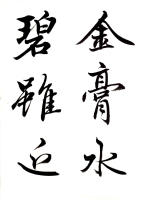 金膏水
碧雖近